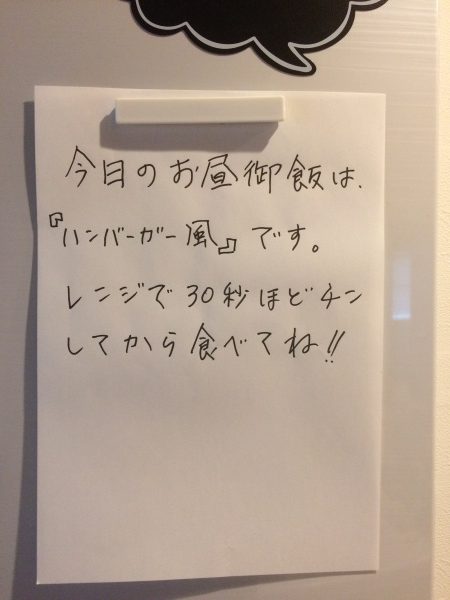 今日のお昼御飯は、
『ハンバーガー風』です。
レンジで30秒ほどチン
してから食べてね!!